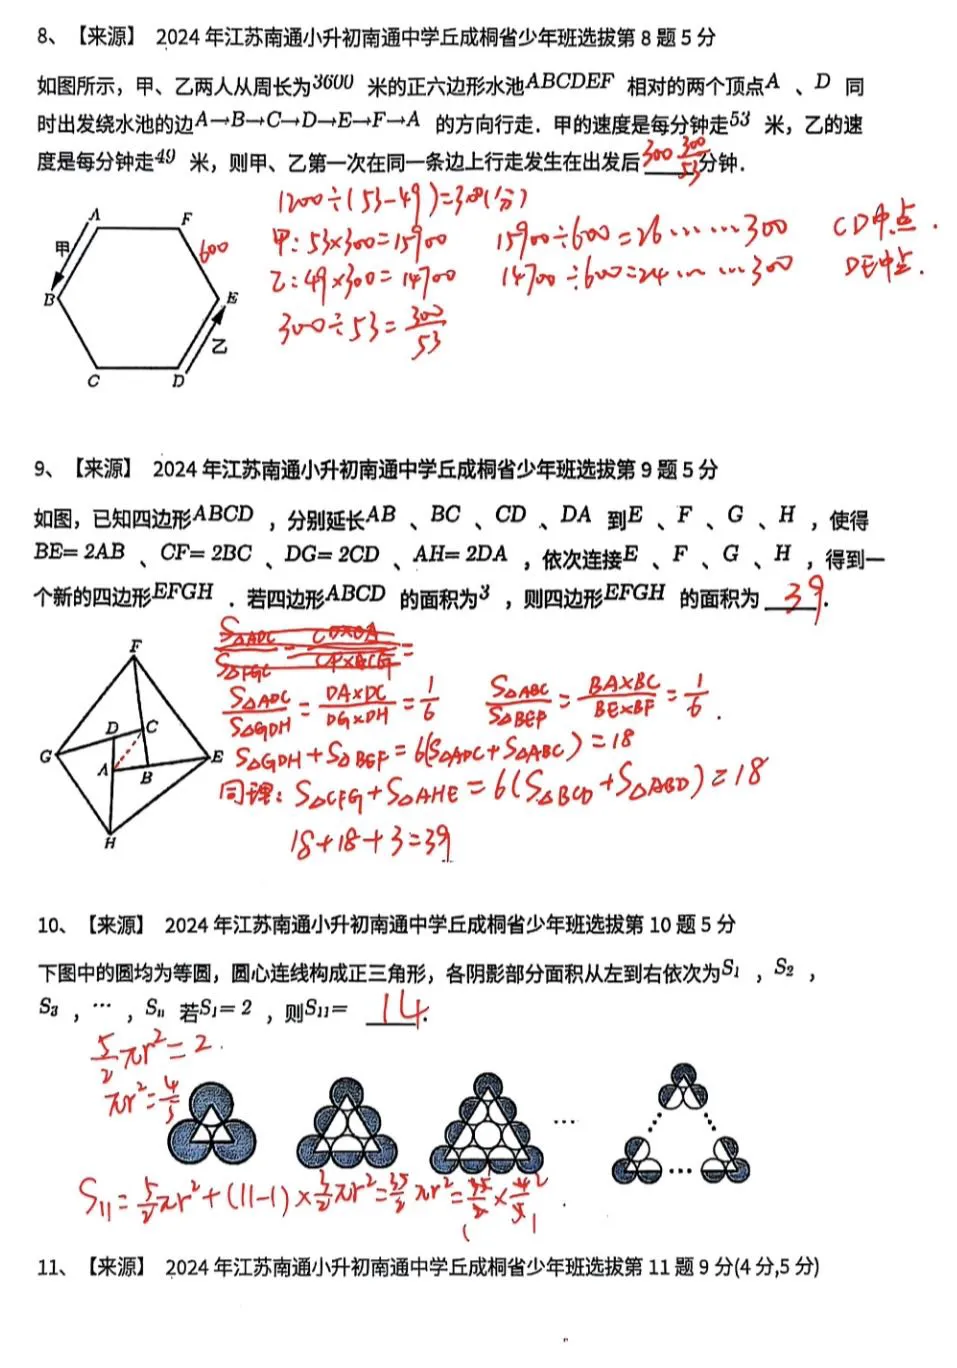 8、【来源】 2024年江苏南通小升初南通中学丘成桐省少年班选拔第8题5分
如图所示，甲、乙两人从周长为3600 米的正六边形水池ABCDEF 相对的两个顶点A 、D 同
时出发绕水池的边A→B→C→D→E→F→A 的方向行走．甲的速度是每分钟走53 米，乙的速
度是每分钟走49 米，则甲、乙第一次在同一条边上行走发生在出发后 300 300/53 分钟．
1200÷(53-49)=300(分)
甲：53×300=15900 15900÷600=26……300 CD中点．
乙：49×300=14700 14700÷600=24……300 DE中点．
300÷53=300/53
A F
甲 600
B E
乙
C D
9、【来源】 2024年江苏南通小升初南通中学丘成桐省少年班选拔第9题5分
如图，已知四边形ABCD ，分别延长AB 、BC 、CD 、DA 到E 、F 、G 、H ，使得
BE=2AB 、CF=2BC 、DG=2CD 、AH=2DA ，依次连接E 、F 、G 、H ，得到一
个新的四边形EFGH ．若四边形ABCD 的面积为3 ，则四边形EFGH 的面积为 39．
S△ADC/S△GDH=DA×DC/DG×DH=1/6 S△ABC/S△BEF=BA×BC/BE×BF=1/6．
S△GDH+S△BEF=6(S△ADC+S△ABC)=18
同理：S△CFG+S△AHE=6(S△BCD+S△ABD)=18
18+18+3=39
F
D C
G E
A B
H
10、【来源】 2024年江苏南通小升初南通中学丘成桐省少年班选拔第10题5分
下图中的圆均为等圆，圆心连线构成正三角形，各阴影部分面积从左到右依次为S₁ ，S₂ ，
S₃ ，… ，Sₙ 若S₁=2 ，则S₁₁= 14．
5/2πr²=2．
πr²=4/5
…
…
S₁₁=5/2πr²+(11-1)×3/2πr²=35/2πr²=35/2×4/5
11、【来源】 2024年江苏南通小升初南通中学丘成桐省少年班选拔第11题9分(4分,5分)